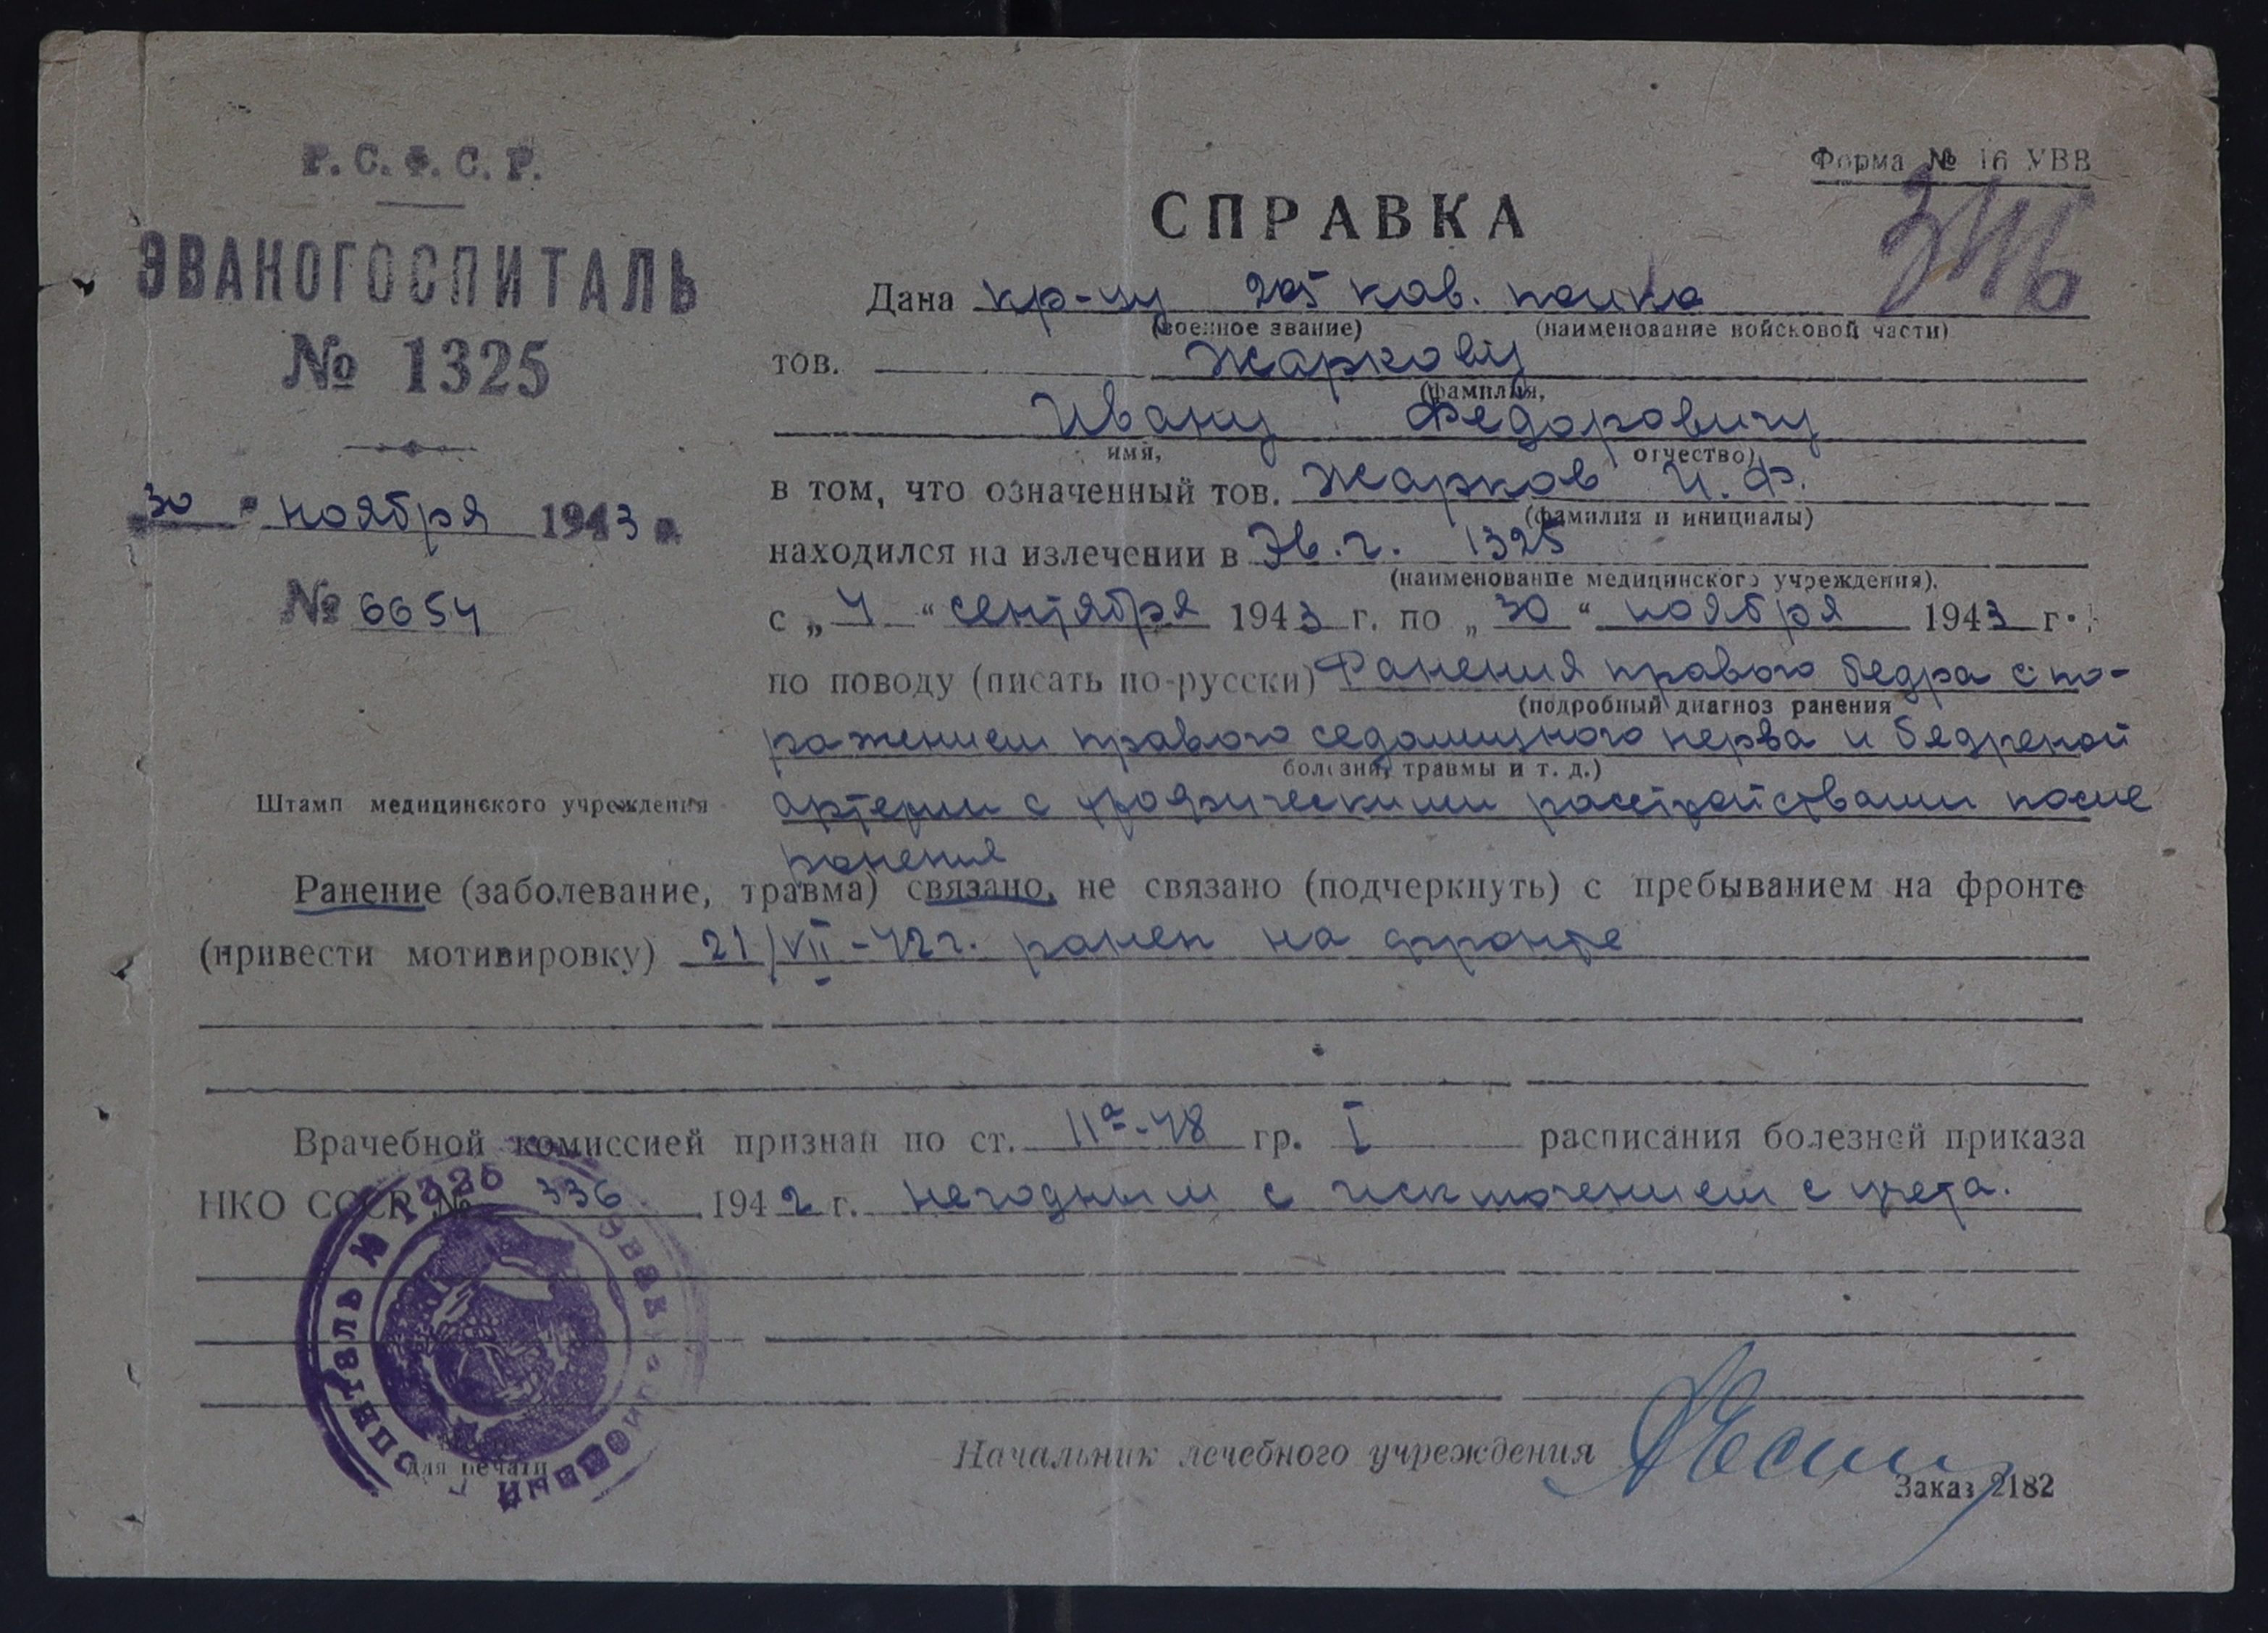 Р. С. Ф. С. Р.
ЭВАКОГОСПИТАЛЬ
№ 1325
30 " ноября 1943 г.
№ 6654
Штамп медицинского учреждения
Форма № 16 УВВ
СПРАВКА
Дана кр-цу 205 кав. полка
(военное звание) (наименование войсковой части)
тов. Жаркову
(фамилия,
Ивану Федоровичу
имя, отчество)
в том, что означенный тов. Жарков И. Ф.
(фамилия и инициалы)
находился на излечении в Эв. г. 1325
(наименование медицинского учреждения).
с „ 4 “ сентября 1943 г. по „ 30 “ ноября 1943 г.
по поводу (писать по-русски) Ранения правого бедра с по-
(подробный диагноз ранения
ражением правого седалищного нерва и бедреной
болезни, травмы и т. д.)
артерии с трофическими расстройствами после
ранения
Ранение (заболевание, травма) связано, не связано (подчеркнуть) с пребыванием на фронте
(привести мотивировку) 21/VII-42 г. ранен на фронте
Врачебной комиссией признан по ст. 11а-48 гр. I расписания болезней приказа
НКО СССР № 336 1942 г. негодным с исключением с учета.
для печати
Начальник лечебного учреждения
Заказ 2182